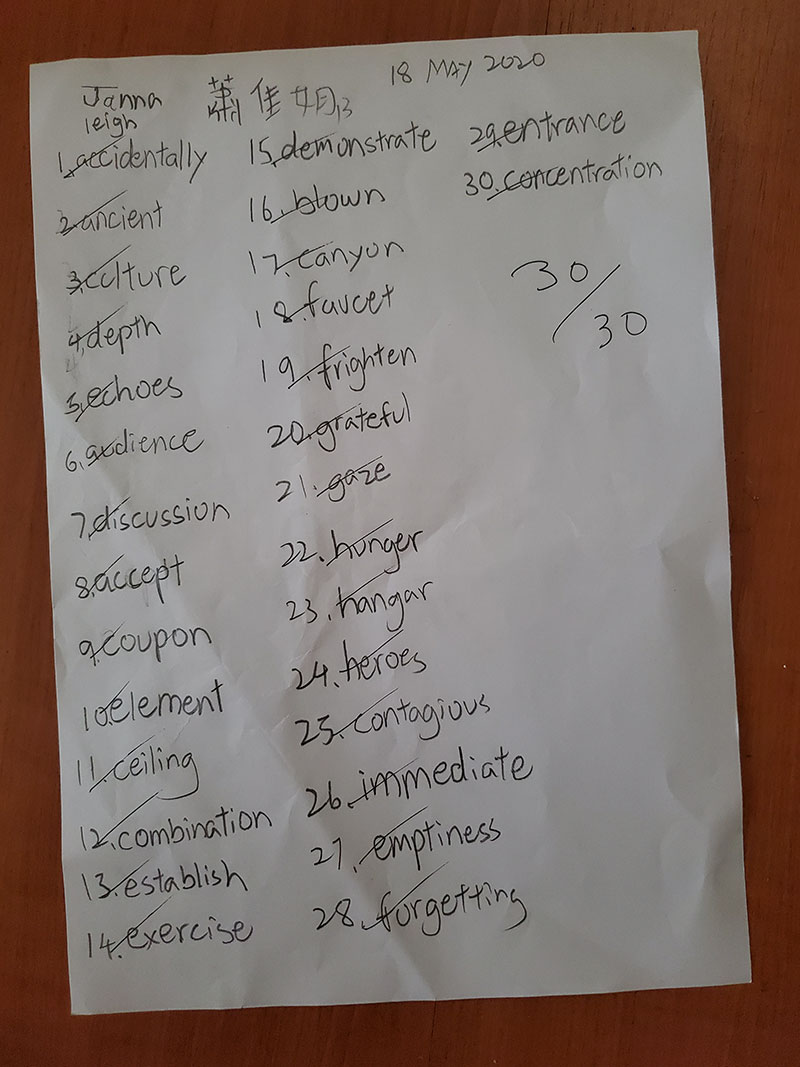 Janna 蕭佳玥13 18 MAY 2020
leigh
1. accidentally
2. ancient
3. culture
4. depth
5. echoes
6. audience
7. discussion
8. accept
9. coupon
10. element
11. ceiling
12. combination
13. establish
14. exercise
15. demonstrate
16. blown
17. canyon
18. faucet
19. frighten
20. grateful
21. gaze
22. hunger
23. hangar
24. heroes
25. contagious
26. immediate
27. emptiness
28. forgetting
29. entrance
30. concentration
30/30